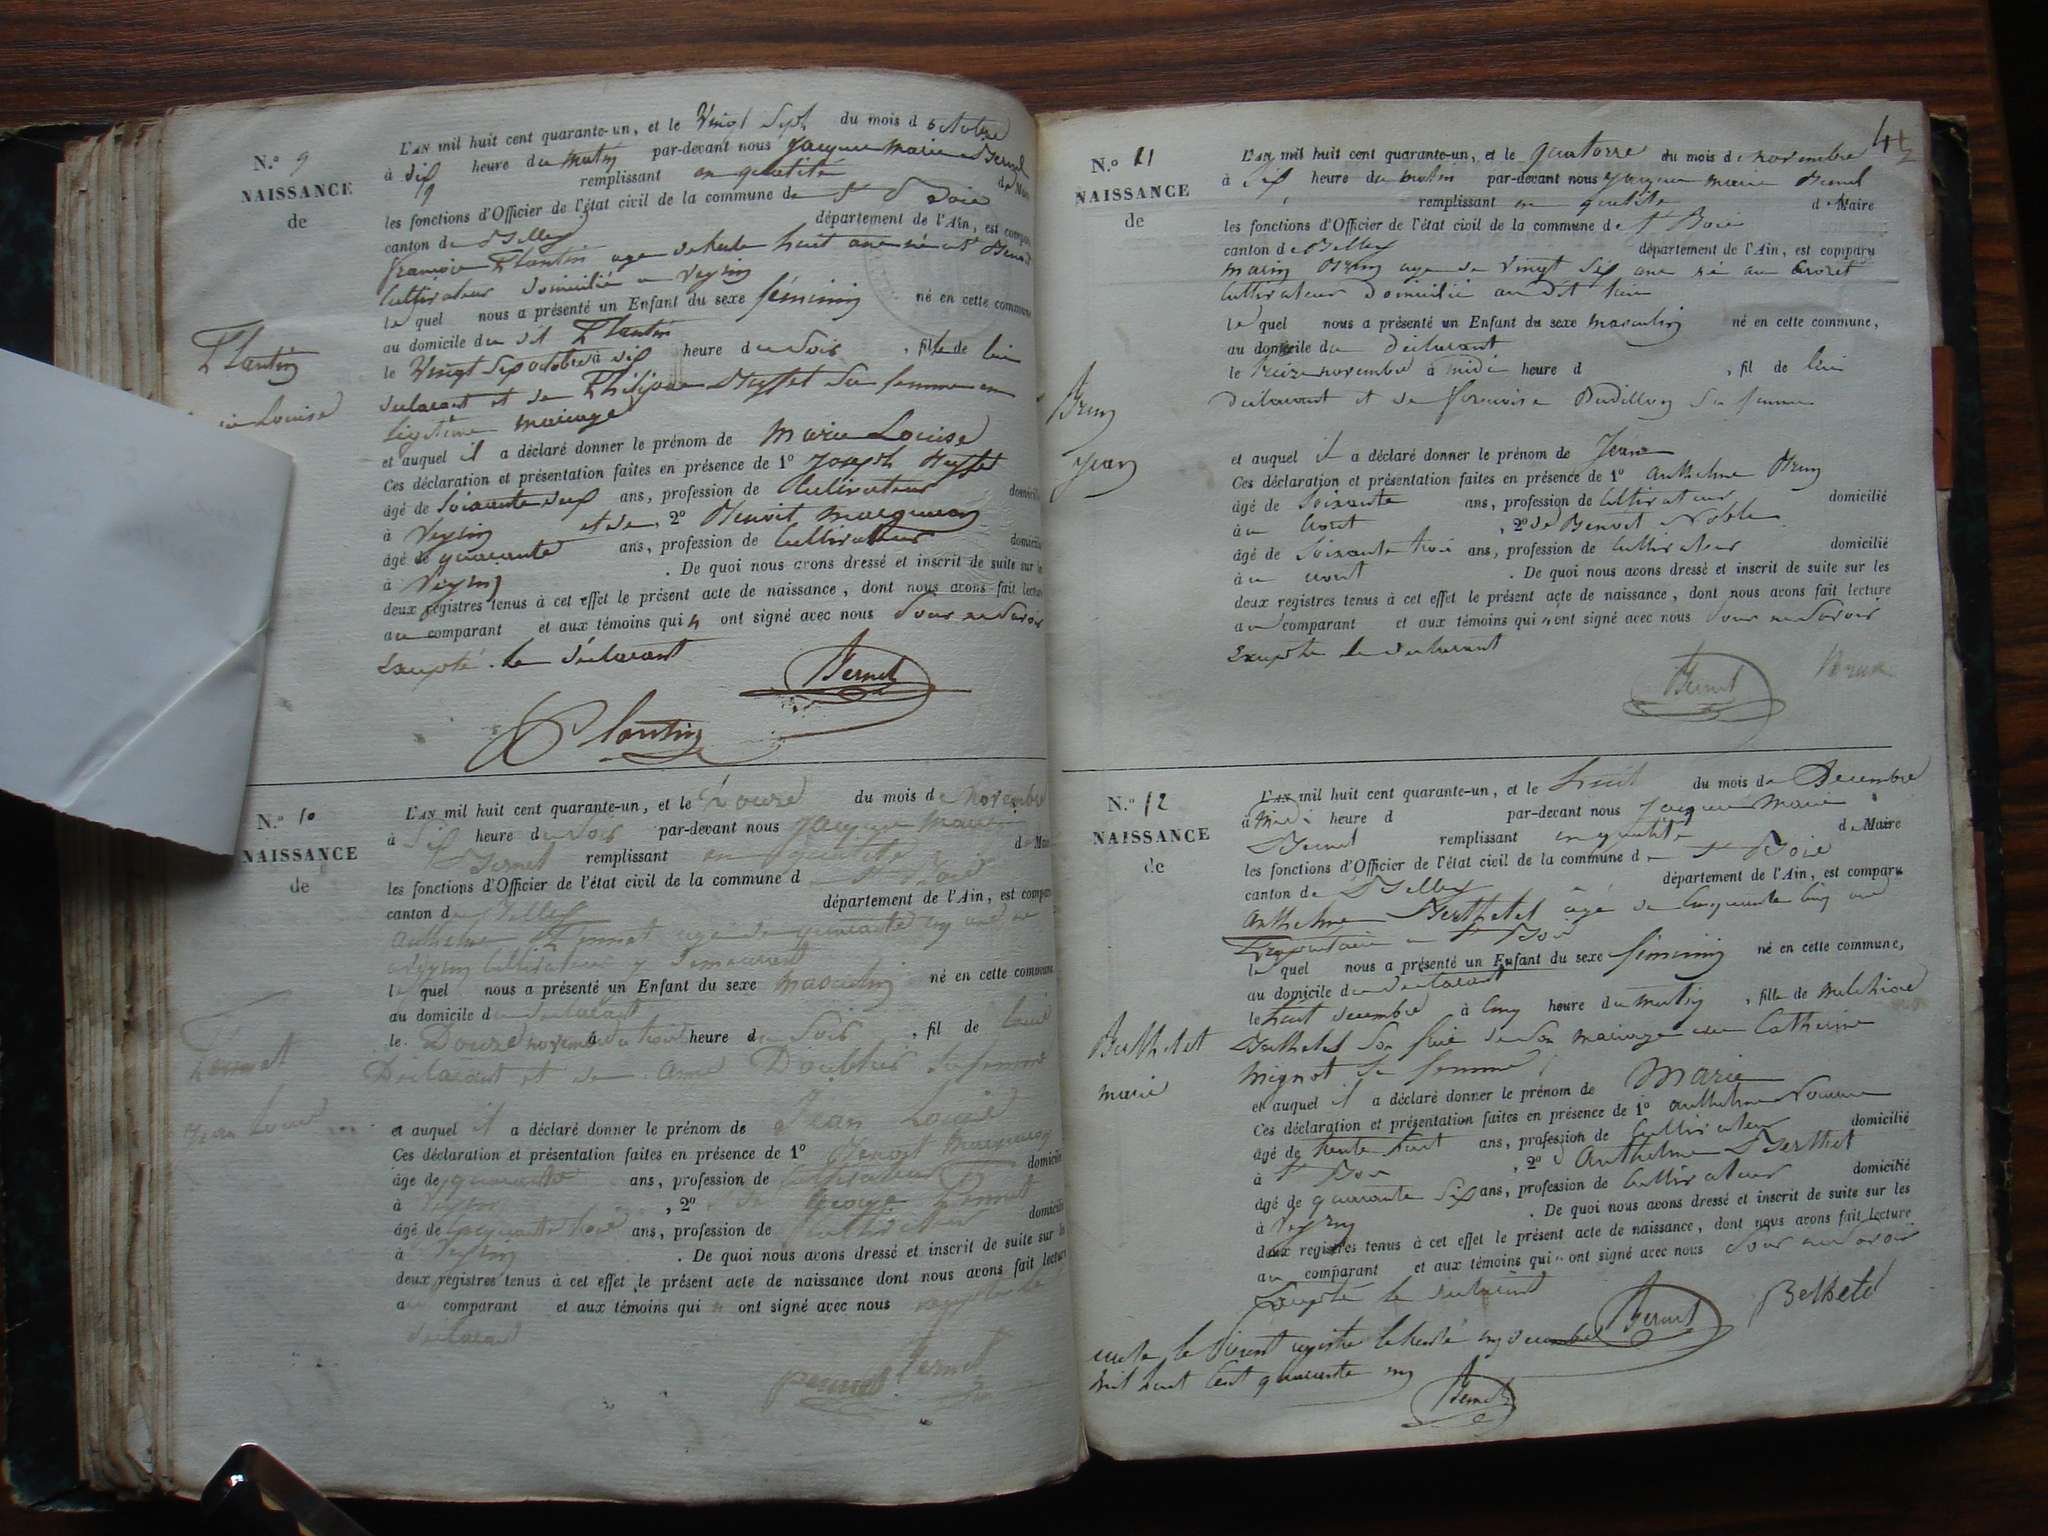 N.º 9
NAISSANCE
de
L'AN mil huit cent quarante-un, et le Vingt Sept du mois d octobre
à dix heure du matin par-devant nous jacque marie Bernel
remplissant en qualité de Maire
les fonctions d'Officier de l'état civil de la commune de St Boie
canton de Belley département de l'Ain, est comparu
françois Plantin age de trente huit ans né a St Benoit
Cultivateur domicilié a Veyrin
le quel nous a présenté un Enfant du sexe féminin né en cette commune
au domicile du dit Plantin
le Vingt Sep octobre à dix heure du Soir , fille de lui
declarant et de Philipine Buffet Sa femme en
légitime mariage
Plantin
Louise
et auquel il a déclaré donner le prénom de marie Louise
Ces déclaration et présentation faites en présence de 1º joseph Buffet
âgé de Soixante ans, profession de Cultivateur domicilié
à Veyrin et de , 2º Benoit
âgé de quarante ans, profession de Cultivateur domicilié
à Veyrin . De quoi nous avons dressé et inscrit de suite sur les
deux registres tenus à cet effet le présent acte de naissance, dont nous avons fait lecture
au comparant et aux témoins qui n ont signé avec nous pour ne Savoir
Excepté le déclarant
Bernel
Plantin
N.º 10
NAISSANCE
de
L'AN mil huit cent quarante-un, et le Douze du mois de novembre
à Six heure du Soir par-devant nous jacque marie
Bernel remplissant en qualité de Maire
les fonctions d'Officier de l'état civil de la commune d St Boie
canton de Belley département de l'Ain, est comparu
Anthelme age de quarante cinq ans né
a Veyrin Cultivateur y demeurant
le quel nous a présenté un Enfant du sexe masculin né en cette commune
au domicile du declarant
le Douze novembre à trois heure du Soir , fil de lui
Declarant et de Sa femme
Jean Louis
et auquel il a déclaré donner le prénom de Jean Louis
Ces déclaration et présentation faites en présence de 1º Benoit
âge de quarante ans, profession de Cultivateur domicilié
à Veyrin , 2º de
âgé de Cinquante trois ans, profession de Cultivateur domicilié
à Veyrin . De quoi nous avons dressé et inscrit de suite sur les
deux registres tenus à cet effet le présent acte de naissance dont nous avons fait lecture
au comparant et aux témoins qui n ont signé avec nous excepté le
declarant
Bernel
N.º 11
NAISSANCE
de
L'AN mil huit cent quarante-un, et le quatorze du mois de novembre
à dix heure du matin par-devant nous jacque marie Bernel
remplissant en qualité de Maire
les fonctions d'Officier de l'état civil de la commune de St Boie
canton de Belley département de l'Ain, est comparu
marin Brun age de Vingt Six ans né au
Cultivateur domicilié au dit lieu
le quel nous a présenté un Enfant du sexe masculin né en cette commune,
au domicile du déclarant
le treize novembre à midi heure d , fil de lui
déclarant et de françoise Sa femme
Brun
jean
et auquel il a déclaré donner le prénom de Jean
Ces déclaration et présentation faites en présence de 1º anthelme Brun
âgé de Soixante ans, profession de Cultivateur domicilié
à au , 2º de Benoit Noble
âgé de Soixante trois ans, profession de Cultivateur domicilié
à au . De quoi nous avons dressé et inscrit de suite sur les
deux registres tenus à cet effet le présent acte de naissance, dont nous avons fait lecture
au comparant et aux témoins qui n ont signé avec nous pour ne Savoir
Excepté le declarant
Bernel Brun
N.º 12
NAISSANCE
de
L'AN mil huit cent quarante-un, et le huit du mois de Decembre
à Midi heure d par-devant nous jacque Marie
Bernel remplissant en qualité de Maire
les fonctions d'Officier de l'état civil de la commune d St Boie
canton de Belley département de l'Ain, est comparu
anthelme Berthetet âgé de Cinquante Cinq ans
Propriétaire a St Boie
le quel nous a présenté un Enfant du sexe féminin né en cette commune,
au domicile du declarant
le huit decembre à Cinq heure du matin , fille de melchiore
Berthetet Son fils de Son mariage avec Catherine
mignot Sa femme
Berthetet
marie
et auquel il a déclaré donner le prénom de Marie
Ces déclaration et présentation faites en présence de 1º anthelme
âgé de trente huit ans, profession de Cultivateur domicilié
à St Boie , 2º Anthelme Berthet
âgé de quarante Six ans, profession de Cultivateur domicilié
à Veyrin . De quoi nous avons dressé et inscrit de suite sur les
deux registres tenus à cet effet le présent acte de naissance, dont nous avons fait lecture
au comparant et aux témoins qui n ont signé avec nous pour ne Savoir
Excepté le declarant
Bernel Betheté
le present registre le trente un decembre
mil huit Cent quarante un
Bernel